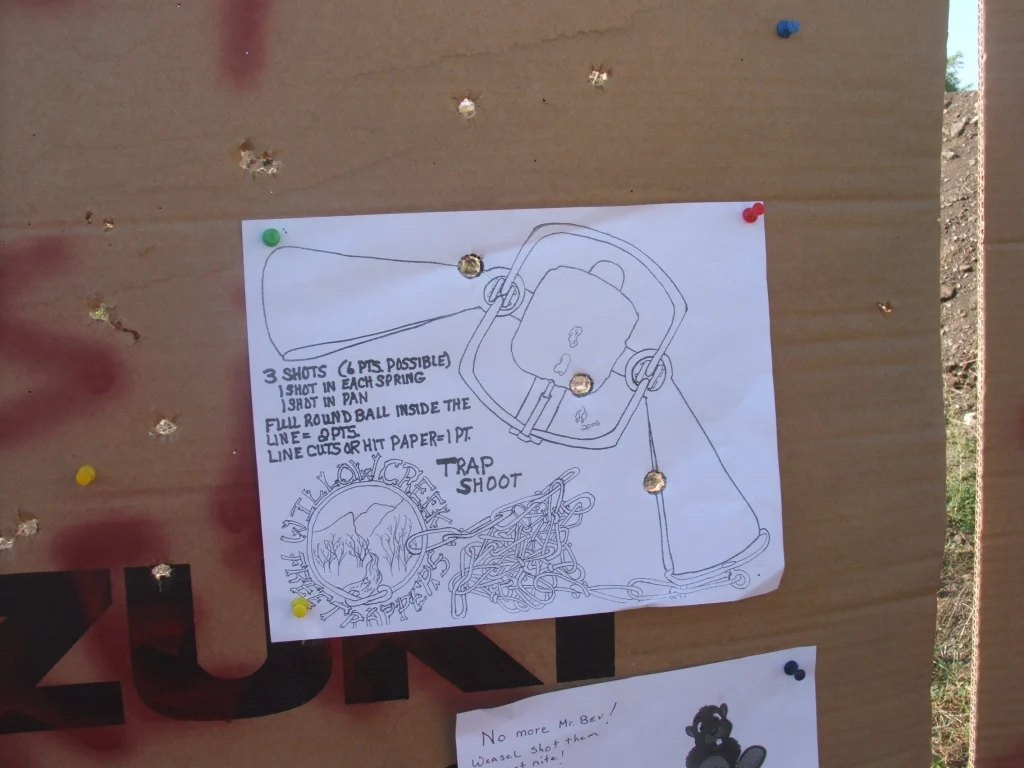 3 SHOTS (6 PTS. POSSIBLE)
1 SHOT IN EACH SPRING
1 SHOT IN PAN
FULL ROUND BALL INSIDE THE
LINE = 2 PTS.
LINE CUTS OR HIT PAPER = 1 PT.
TRAP
SHOOT
WILLOW CREEK
2006
ZUKI
No more Mr. Bev!
Weasel shot them
nite!